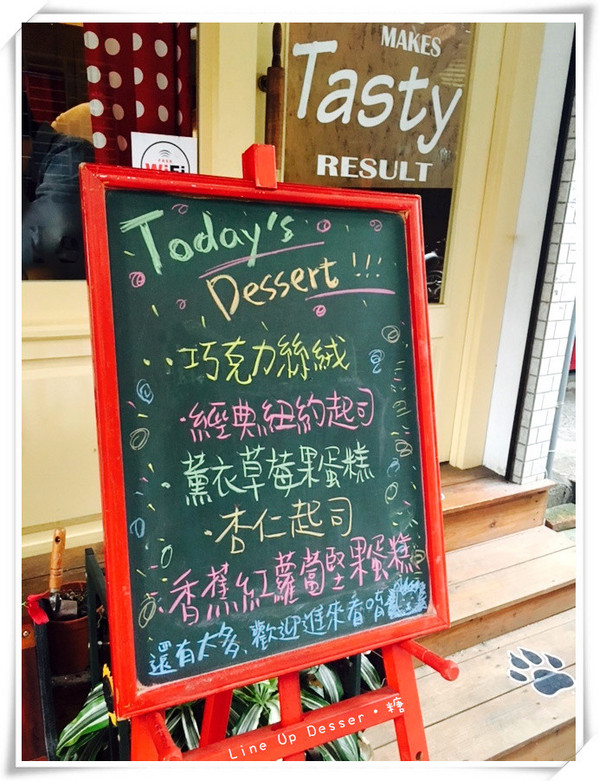 MAKES
Tasty
RESULT
WiFi
Today's
Dessert !!!
·巧克力絲絨
·經典紐約起司
薰衣草莓果蛋糕
·杏仁起司
·香蕉紅蘿蔔堅果蛋糕
還有太多、歡迎進來看唷
Line Up Desser·糖